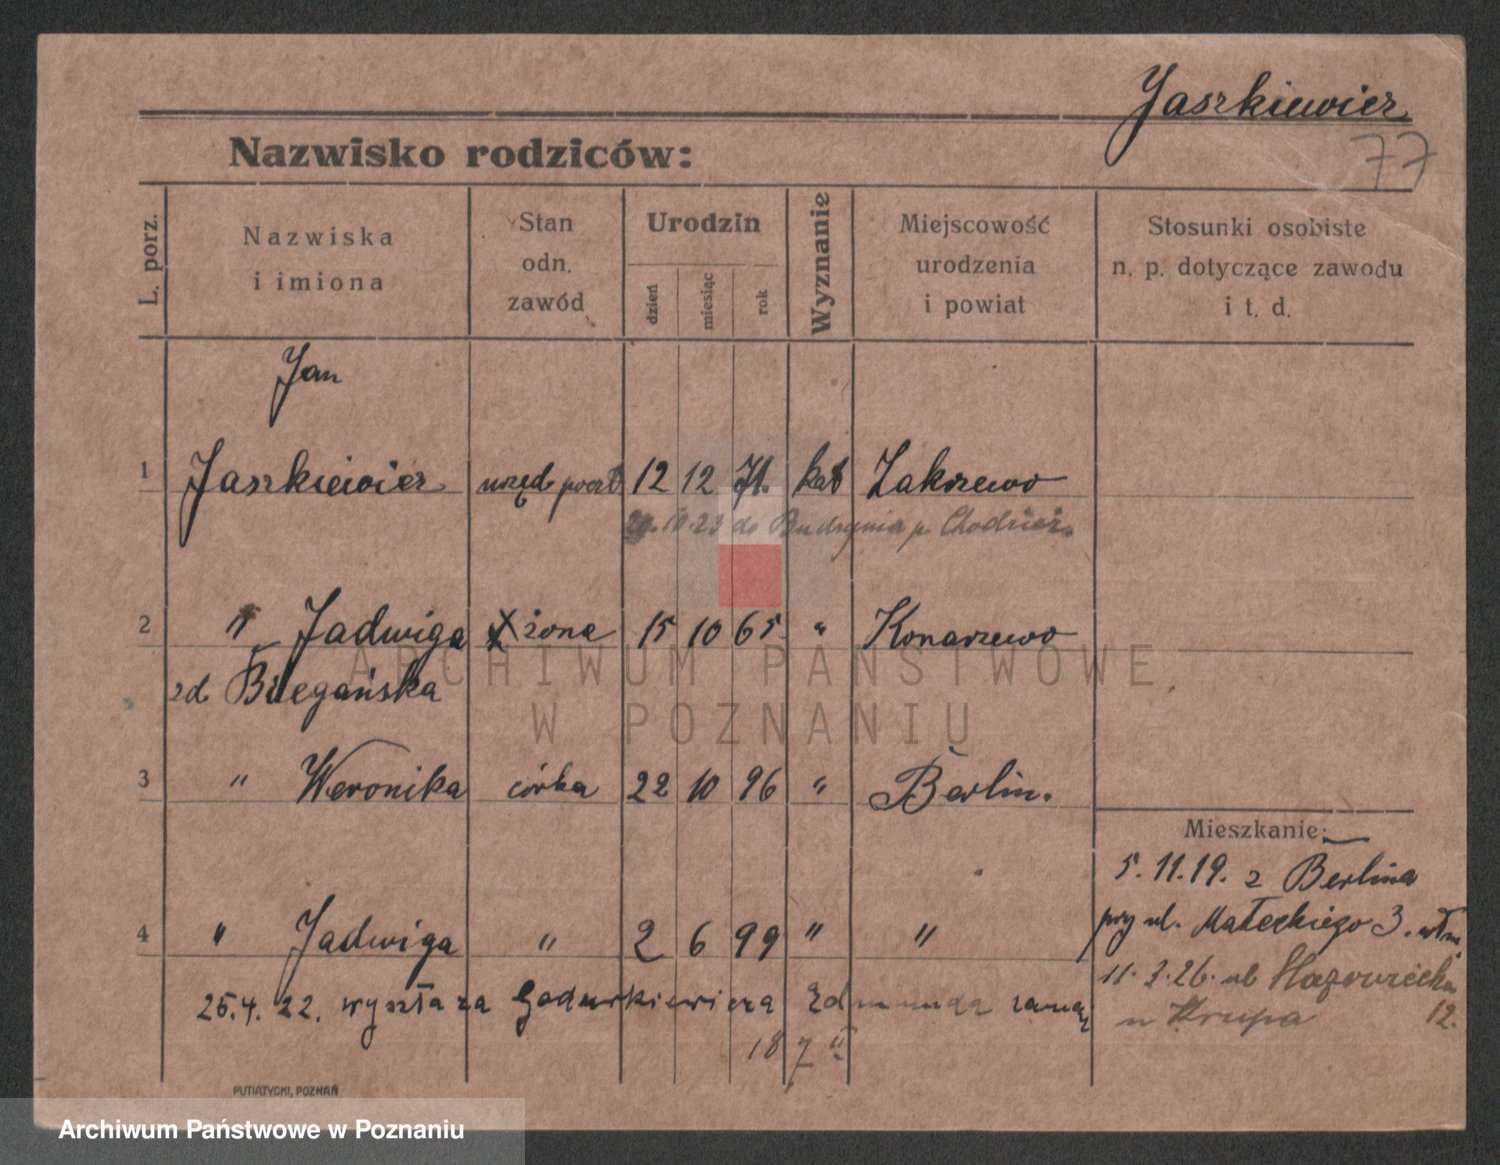 Jaszkiewicz
77
Nazwisko rodziców:
L. porz.
Nazwiska
i imiona
Stan
odn.
zawód
Urodzin
dzień
miesiąc
rok
Wyznanie
Miejscowość
urodzenia
i powiat
Stosunki osobiste
n. p. dotyczące zawodu
i t. d.
Jan
1 Jaszkiewicz urzęd poczt 12 12 71. kat Zakrzewo
10.23 do Budzynia p. Chodzież.
2 " Jadwiga żona 15 10 65 " Konarzewo
zd Biegańska
3 " Weronika córka 22 10 96 " Berlin.
Mieszkanie:
5.11.19. z Berlina
przy ul. Małeckiego 3.
4 " Jadwiga " 2 6 99 " "
11.3.26. ul Mazowiecka
12.
u Krupa
25.4.22. wyszła za Gadurkiewicza Edmunda
18
PUTIATYCKI, POZNAŃ
ARCHIWUM PAŃSTWOWE
W POZNANIU
Archiwum Państwowe w Poznaniu